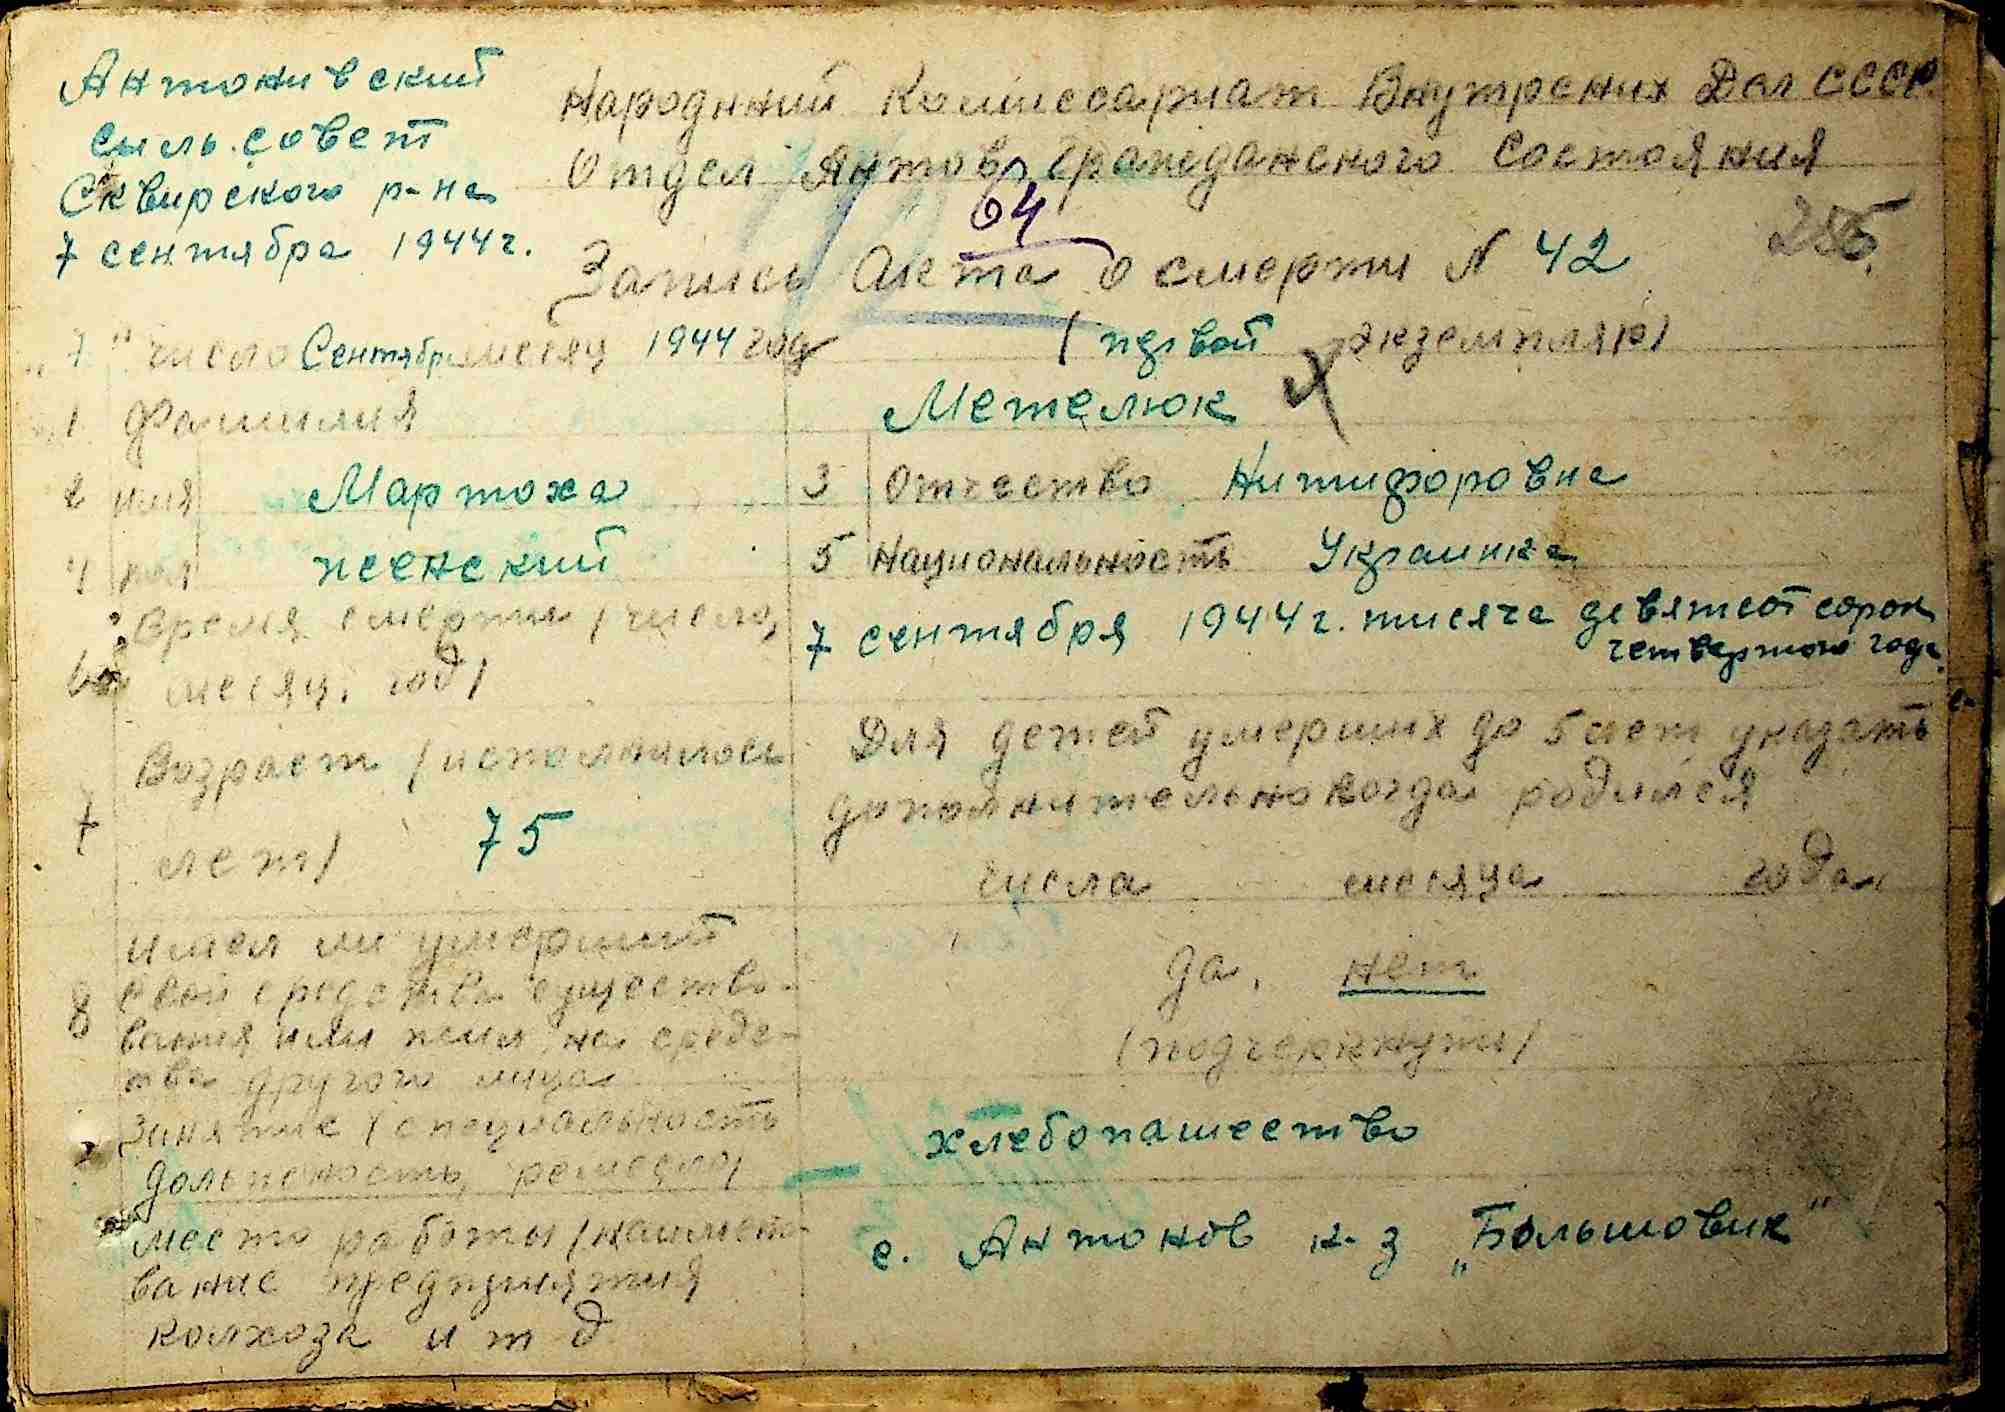 Антонивский
сыль.совет
Сквирского р-на
7 сентября 1944 г.
Народнний Комиссариат Внутрених Дел СССР.
Отдел Актов Гражданского Состояния
64
Запись Акта о смерти N 42
„7" число Сентябр месяц 1944 год (первой экземпляр)
1 Фамилия Метелюк
2 имя Мартоха 3 Отчество Никифоровна
4 пол женский 5 Национальность Украинка
6 Время смерти (число, месяц, год) 7 сентября 1944 г. тисяча девятсот сорок
четвертого года.
7 Возраст (исполнилось Для детей умерших до 5 лет указать
дополнительно когда родился
лет) 75 числа месяца года
8 имел ли умерший
свои средства существо-
вания или жил на средс-
тва другого лица
да, нет
(подчеркнути)
Занятие (специальность
должность, ремесло)
хлебопашество
место работы (наимено-
вание предприятия
колхоза и т д
с. Антонов к-з „Большовик"